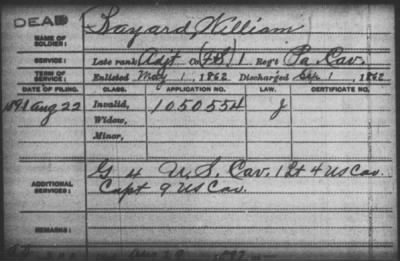 DEAD
Bayard, William
NAME OF SOLDIER:
SERVICE: Late rank Adjt. Co. (FS) 1 Reg't Pa. Cav.
TERM OF SERVICE: Enlisted May 1, 1862 Discharged Sep. 1, 1862
DATE OF FILING. CLASS. APPLICATION NO. LAW. CERTIFICATE NO.
1891 Aug 22 Invalid, 1050554 J
Widow,
Minor,
ADDITIONAL SERVICES: G 4 U.S. Cav. 1 Lt 4 US Cav.
Capt 9 US Cav.
REMARKS: